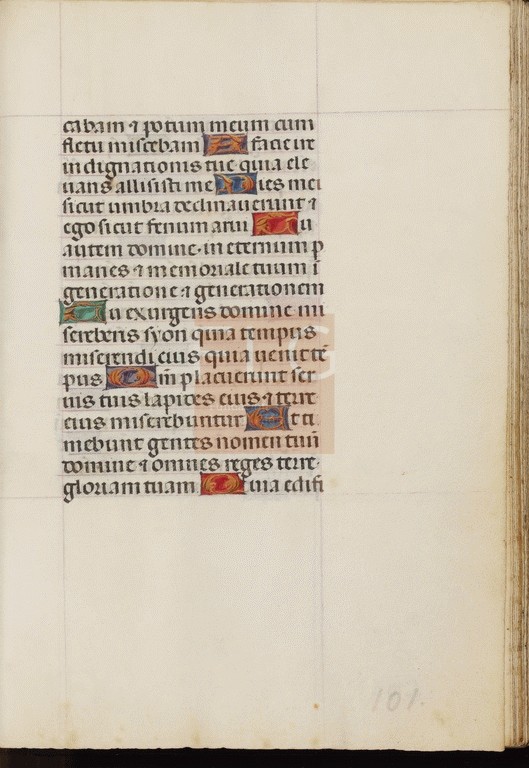 cabam ⁊ potum meum cum
fletu miscebam A facie ire
indignationis tue quia ele
uans allisisti me Dies mei
sicut umbra declinauerunt ⁊
ego sicut fenum arui Tu
autem domine in eternum p
manes ⁊ memoriale tuum ī
generatione ⁊ generationem
Tu exurgens domine mi
sereberis syon quia tempus
miserendi eius quia uenit tē
pus Qm̄ placuerunt ser
uis tuis lapides eius ⁊ terre
eius miserebuntur Et ti
mebunt gentes nomen tuū
domine ⁊ omnes reges terre
gloriam tuam Quia edifi
101.